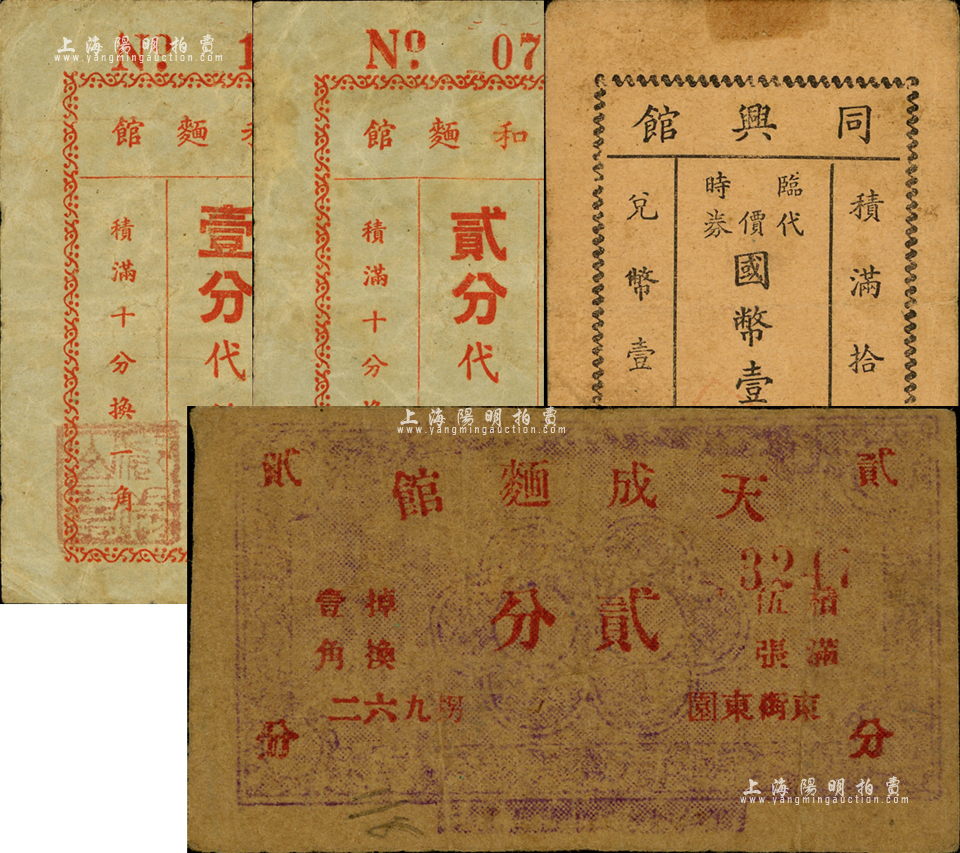 上海陽明拍賣
www.yangmingauction.com
No. 1
館 麵
壹分代
積滿十分換一角
No. 07
館 麵 和
貳分代
積滿十分換
同興館
積滿拾
臨時代價券
國幣壹
兌幣壹
上海陽明拍賣
www.yangmingauction.com
上海陽明拍賣
www.yangmingauction.com
貳 貳
天成麵館
3247
貳分
積滿伍張
掉換壹角
東街東園
二六九捌
分 分
上海陽明拍賣
www.yangmingauction.com